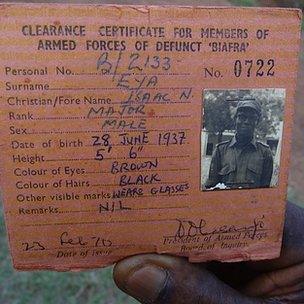 CLEARANCE CERTIFICATE FOR MEMBERS OF
ARMED FORCES OF DEFUNCT 'BIAFRA'
Personal No. B/2133 No. 0722
Surname EYA
Christian/Fore Name ISAAC N.
Rank MAJOR
Sex MALE
Date of birth 28 JUNE 1937
Height 5' 6"
Colour of Eyes BROWN
Colour of Hairs BLACK
Other visible marks WEARS GLASSES
Remarks NIL
23 Feb 70
Date of Issue
President of Armed Forces
Board of Inquiry.